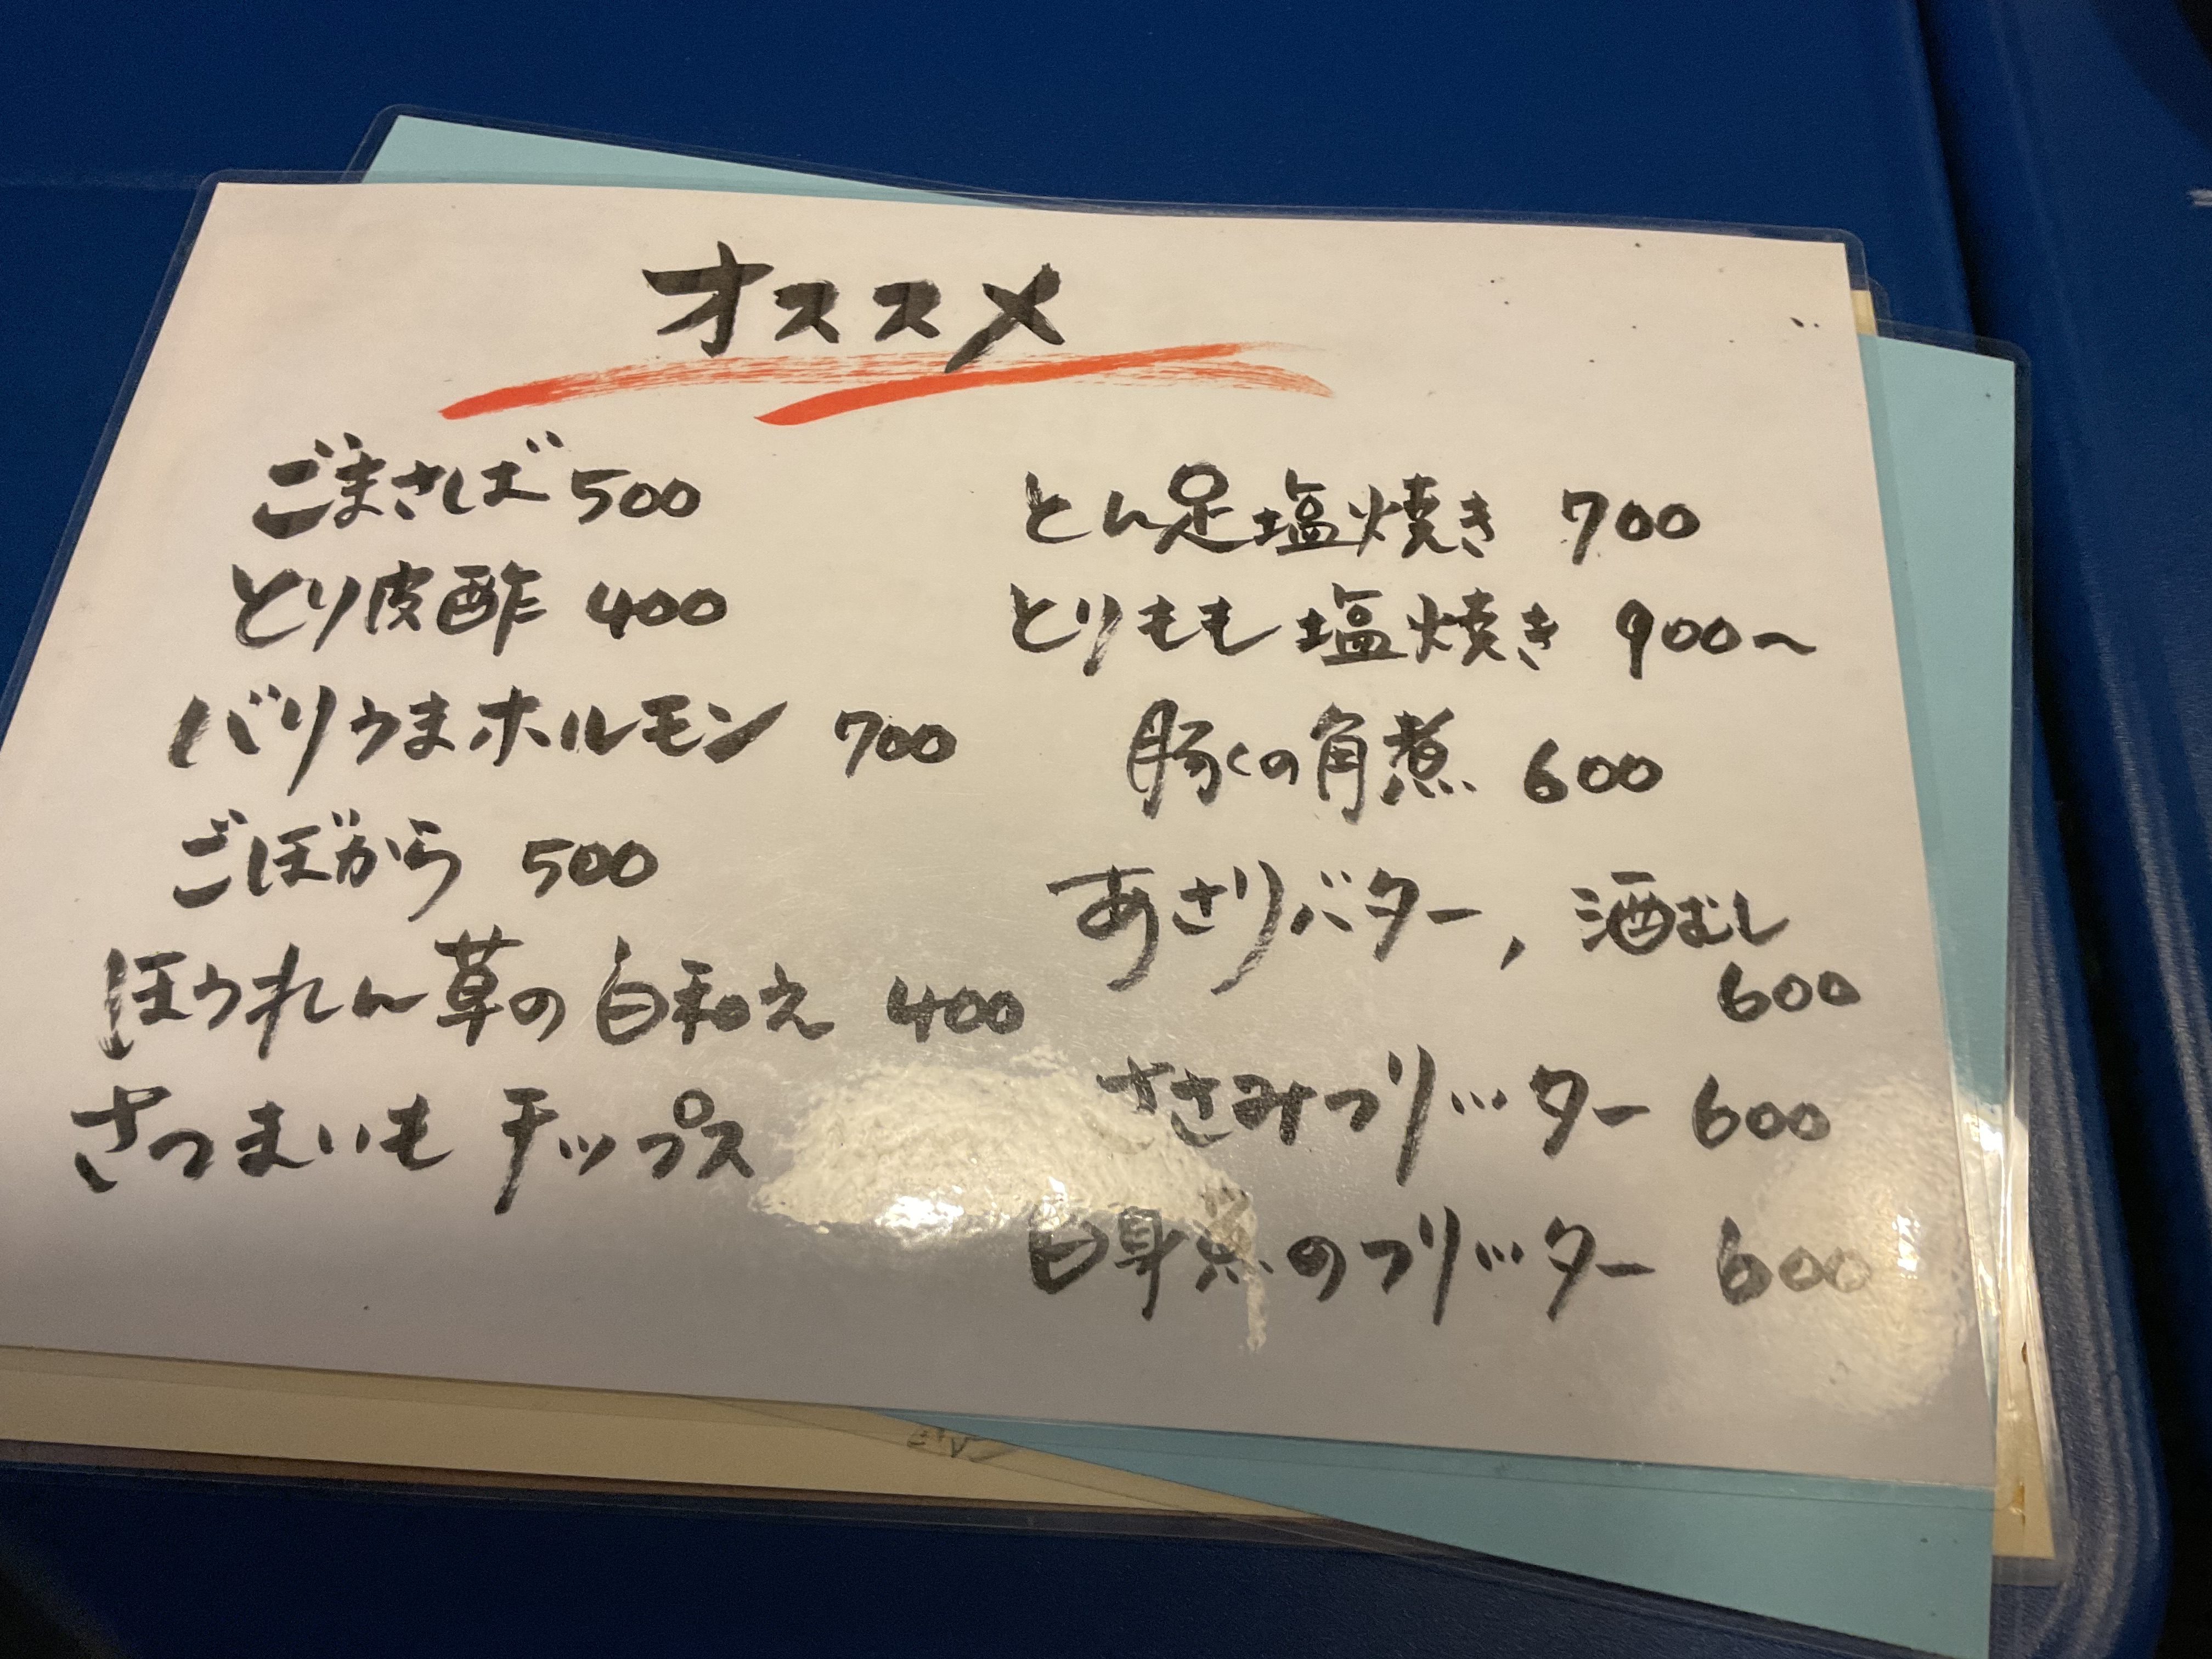 オススメ
ごまさば 500
とり皮酢 400
バリうまホルモン 700
ごぼから 500
ほうれん草の白和え 400
さつまいもチップス
とん足塩焼き 700
とりもも塩焼き 900〜
豚くの角煮 600
あさりバター, 酒むし
600
ささみフリッター 600
白身魚のフリッター 600